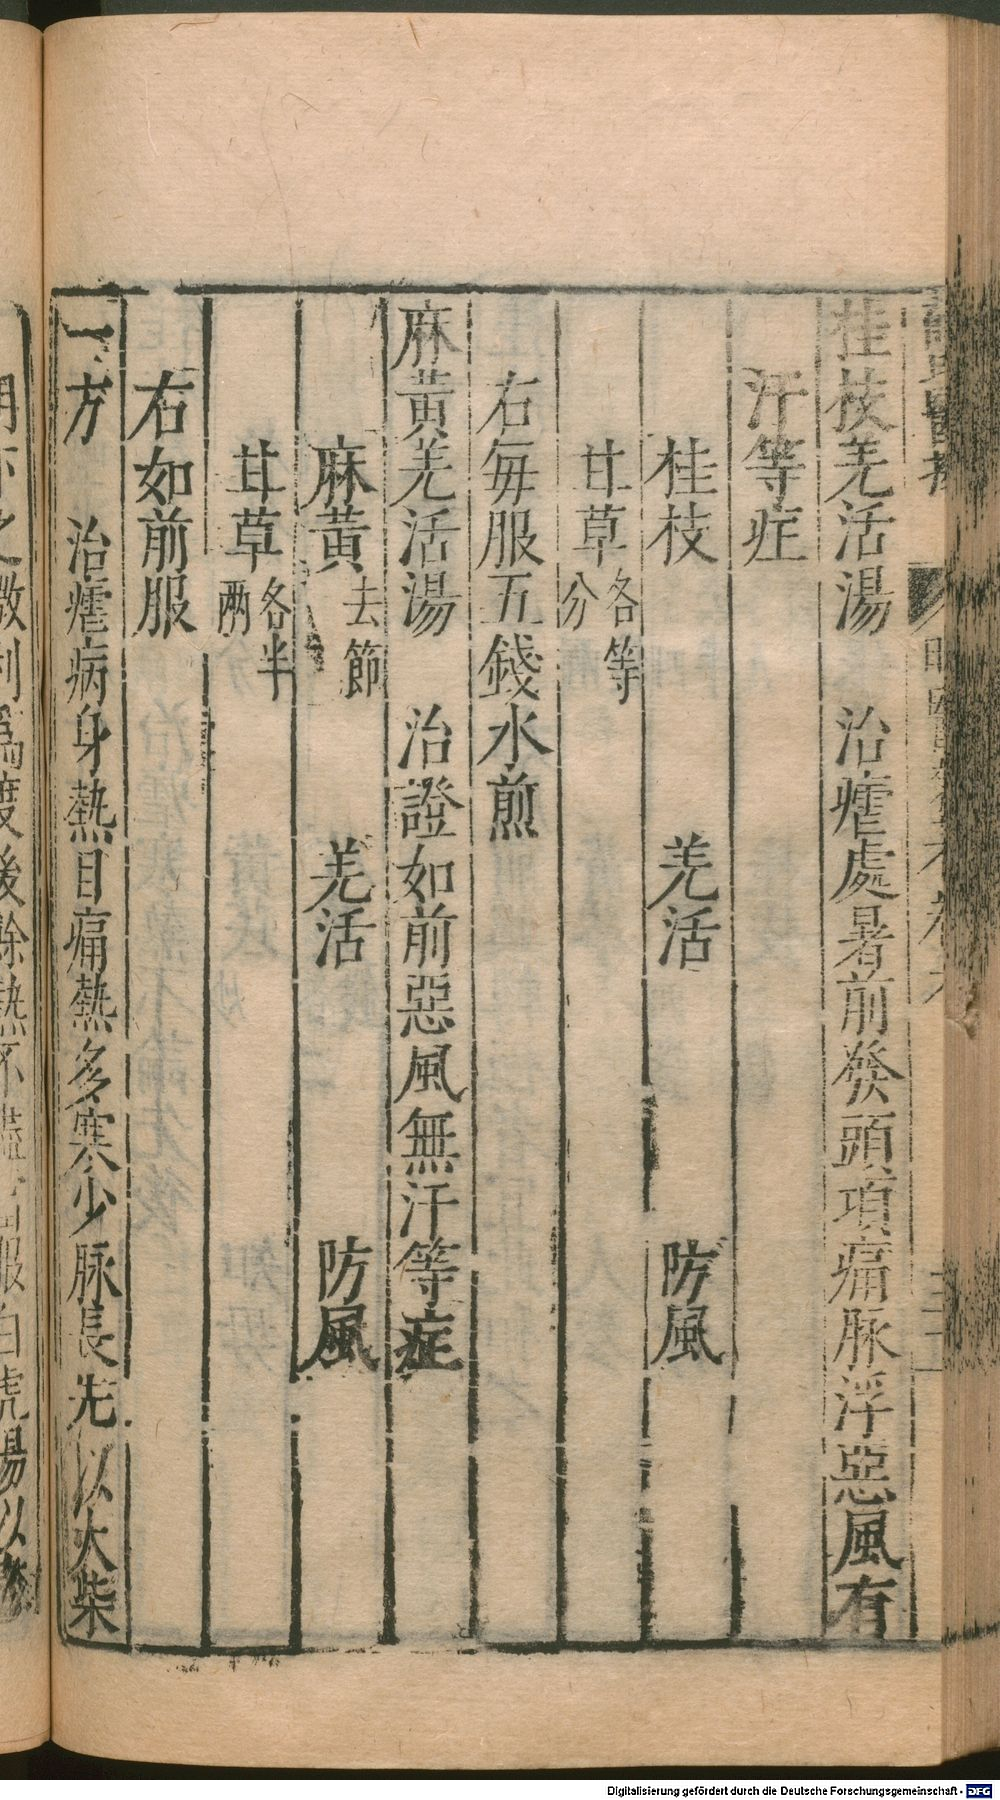 桂枝羌活湯　治瘧處暑前發頭項痛脉浮惡風有
汗等症
桂枝　羌活　防風
甘草各等分
右每服五錢水煎
麻黃羌活湯　治證如前惡風無汗等症
麻黃去節　羌活　防風
甘草各半兩
右如前服
一方　治瘧病身熱目痛熱多寒少脉長先以大柴
熱不
服白虎湯以
Digitalisierung gefördert durch die Deutsche Forschungsgemeinschaft - DFG